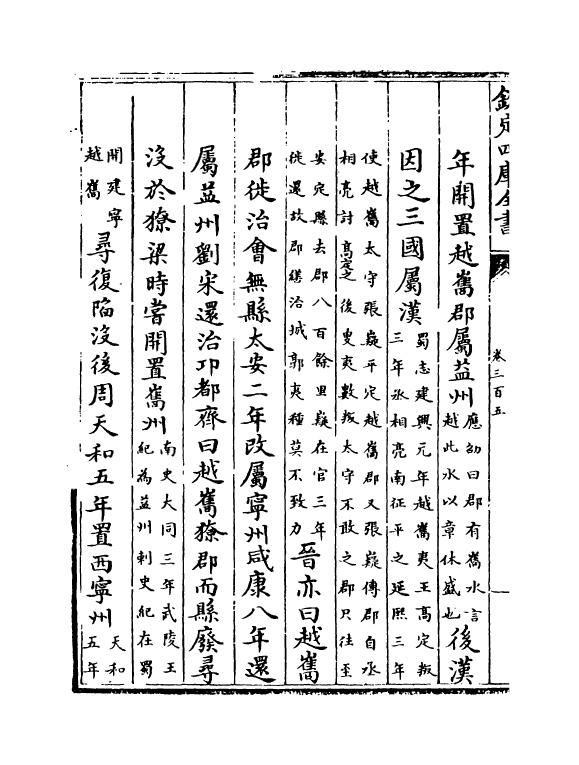 欽定四庫全書
卷三百五
年開置越巂郡屬益州應劭曰郡有巂水言越此水以章休盛也後漢
因之三國屬漢蜀志建興元年越巂夷王高定叛三年丞相亮南征平之延熙三年
使越巂太守張嶷平定越巂郡又張嶷傳郡自丞相亮討高定之後叟夷數叛太守不敢之郡只往至
安定縣去郡八百餘里嶷在官三年徙還故郡繕治城郭夷種莫不致力晉亦曰越巂
郡徙治會無縣太安二年改屬寧州咸康八年還
屬益州劉宋還治卭都齊曰越巂獠郡而縣廢尋
沒於獠梁時嘗開置巂州南史大同三年武陵王紀為益州刺史紀在蜀
開建寧越巂尋復陷沒後周天和五年置西寧州天和五年